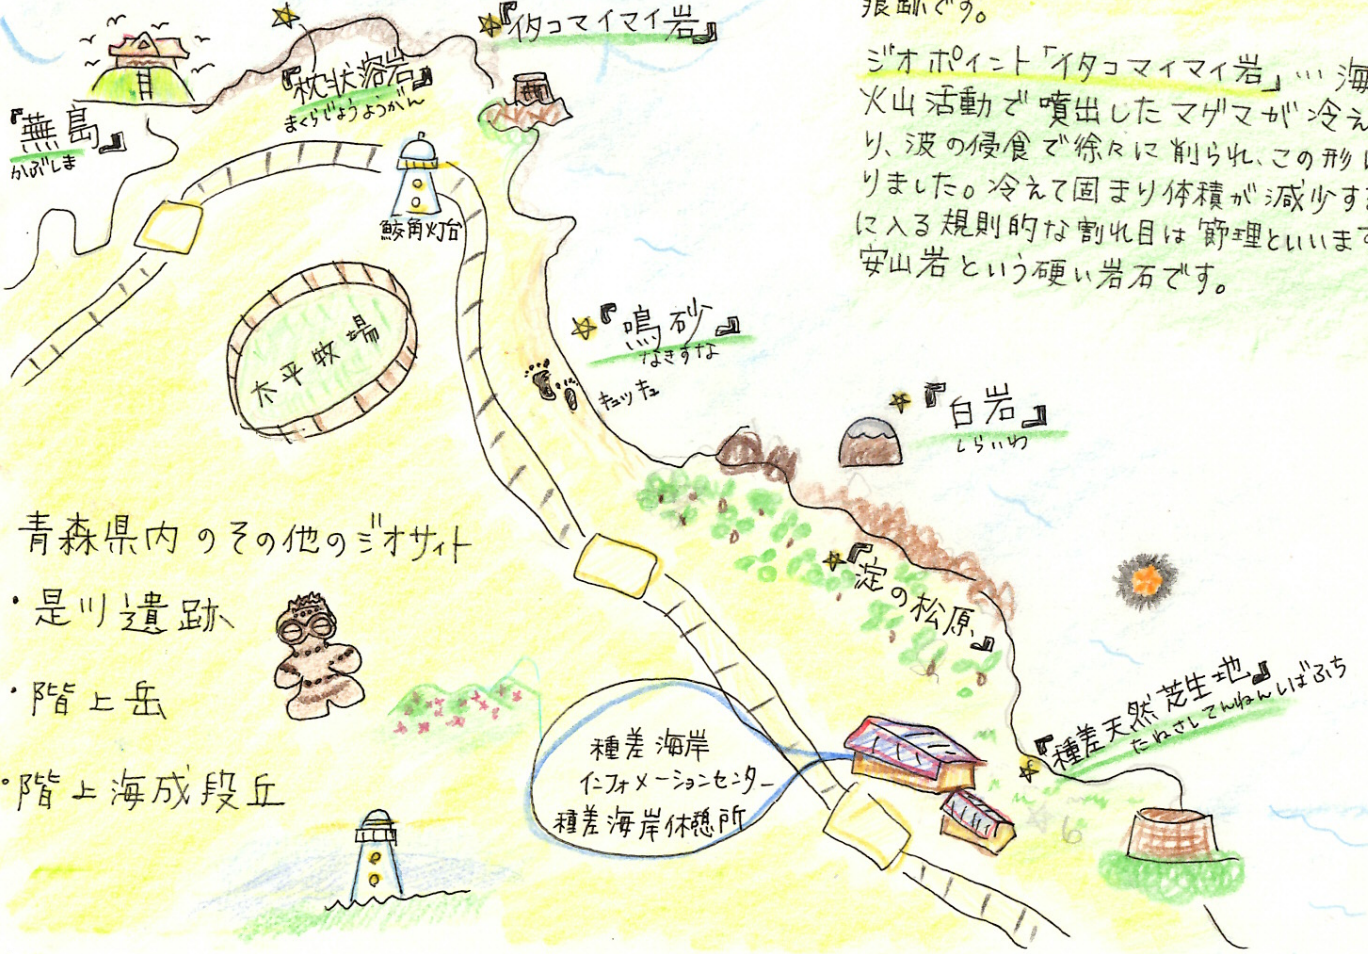 『イタコマイマイ岩』
『枕状溶岩』
まくらじょうようがん
『蕪島』
かぶしま
鮫角灯台
大平牧場
『鳴砂』
なきすな
キュッキュ
『白岩』
しらいわ
『淀の松原』
『種差天然芝生地』
たねさしてんねんしばふち
種差海岸
インフォメーションセンター
種差海岸休憩所
青森県内のその他のジオサイト
・是川遺跡
・階上岳
・階上海成段丘
痕跡です。
ジオポイント「イタコマイマイ岩」… 海
火山活動で噴出したマグマが冷え
り、波の侵食で徐々に削られ、この形に
りました。冷えて固まり体積が減少す
に入る規則的な割れ目は節理といいま
安山岩という硬い岩石です。